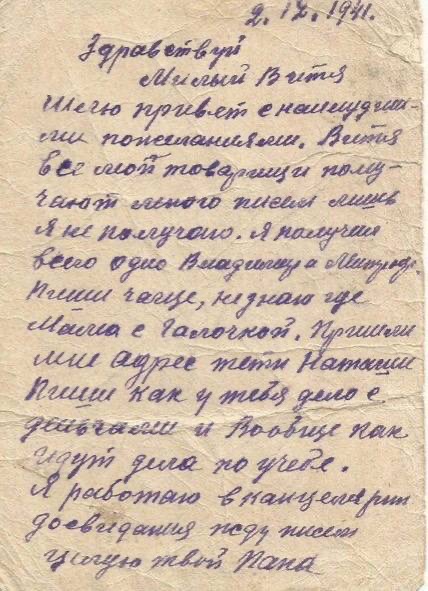 2. 12. 1941.
Здравствуй
Милый Витя
Шлю привет с наилудши-
ми пожеланиями. Витя
все мои товарищи полу-
чают много писем лишь
я не получаю. Я получил
всего одно Владимира
Пиши чаще, незнаю где
Мама с Галочкой. Пришли
мне адрес тети Наташи
Пиши как у тебя дело с
и Вообще как
идут дела по учебе.
Я работаю в канцелярии
досвидания жду писем
целую твой Папа